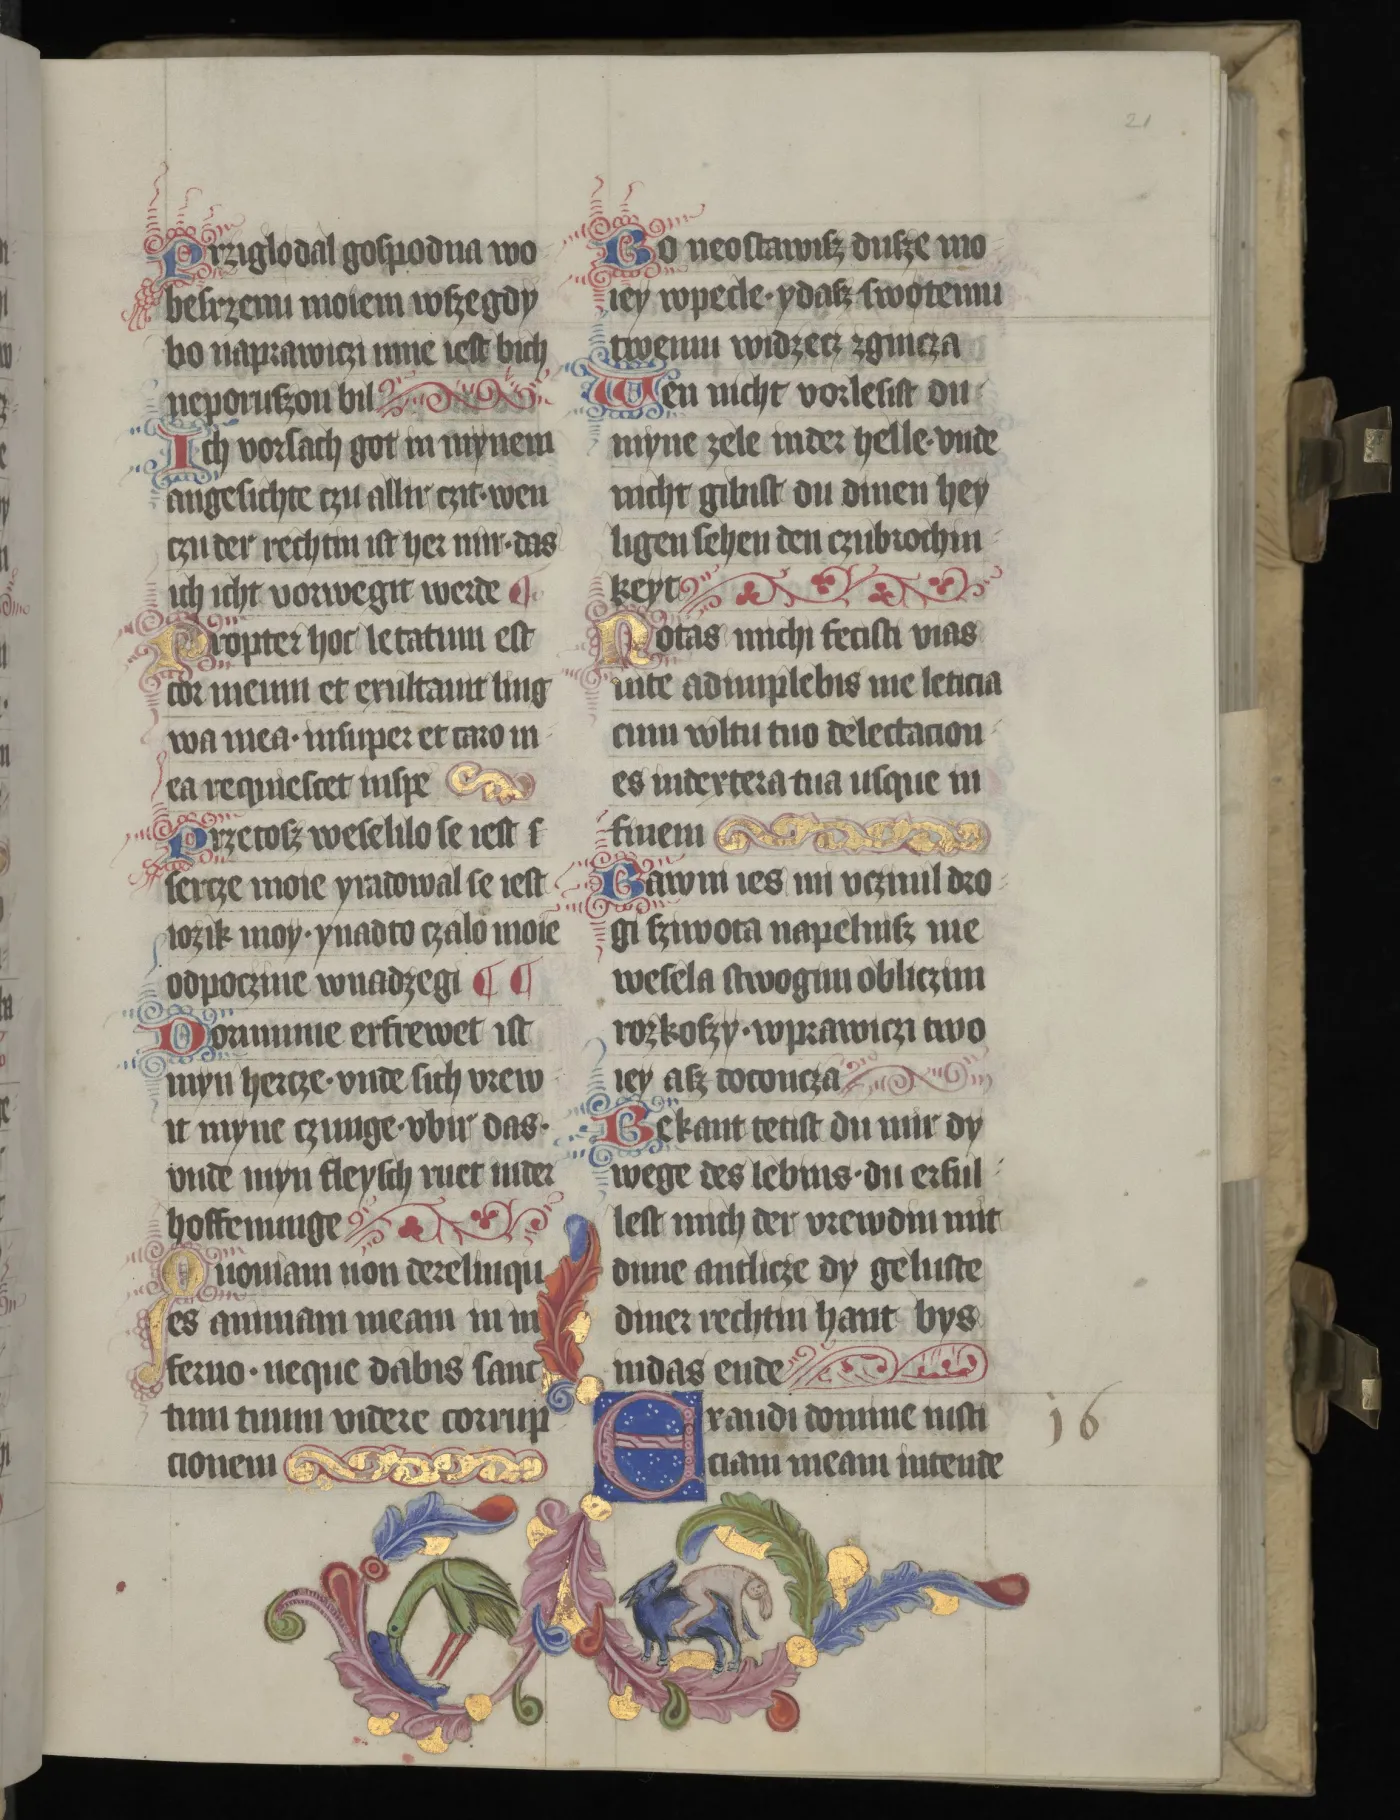 21
Prziglodal gospodna wo
besrzenu moiem wszegdy
bo naprawiczi mne iest bich
neporuszon bil
Ich vorsach got in mynem
angesichte czu allir czit·wen
czu der rechtin ist her mir·das
ich icht vorwegit werde ¶
Propter hoc letatum est
cor meum et exultauit ling
wa mea·insuper et caro m
ea requiescet inspe
Przetosz weselilo se iest s
sercze moie yradowal se iest
iozik moy·ynadto czalo moie
odpoczine wnadzegi ¶ ¶
Dorumme erfrewet ist
myn hercze·vnde sich vrew
it myne czunge·vbir das·
vnde myn fleysch ruet inder
hoffenunge
Quoniam non derelinqu
es animam meam in in
ferno·neque dabis sanc
tum tuum videre corrup
cionem
Bo neostawisz dusze mo
iey wpecle·ydasz swotemu
twemu widzecz zgincza
Wen nicht vorlesist du
myne zele inder helle·vnde
nicht gibist du dinen hey
ligen sehen den czubrochin
keyt
Notas michi fecisti vias
uite adimplebis me leticia
cum wltu tuo delectacion
es indextera tua usque in
finem
Sawni ies mi vczinil dro
gi sziwota napelnisz me
wesela stwogim obliczim
rozkoszy·wprawiczi two
iey asz dotoncza
Bekant tetist du mir dy
wege des lebins·du erful
lest mich der vrewdin mit
dine antlicze dy geluste
diner rechtin hant bys
indas ende
Exaudi domine iusti
ciam meam intende
16